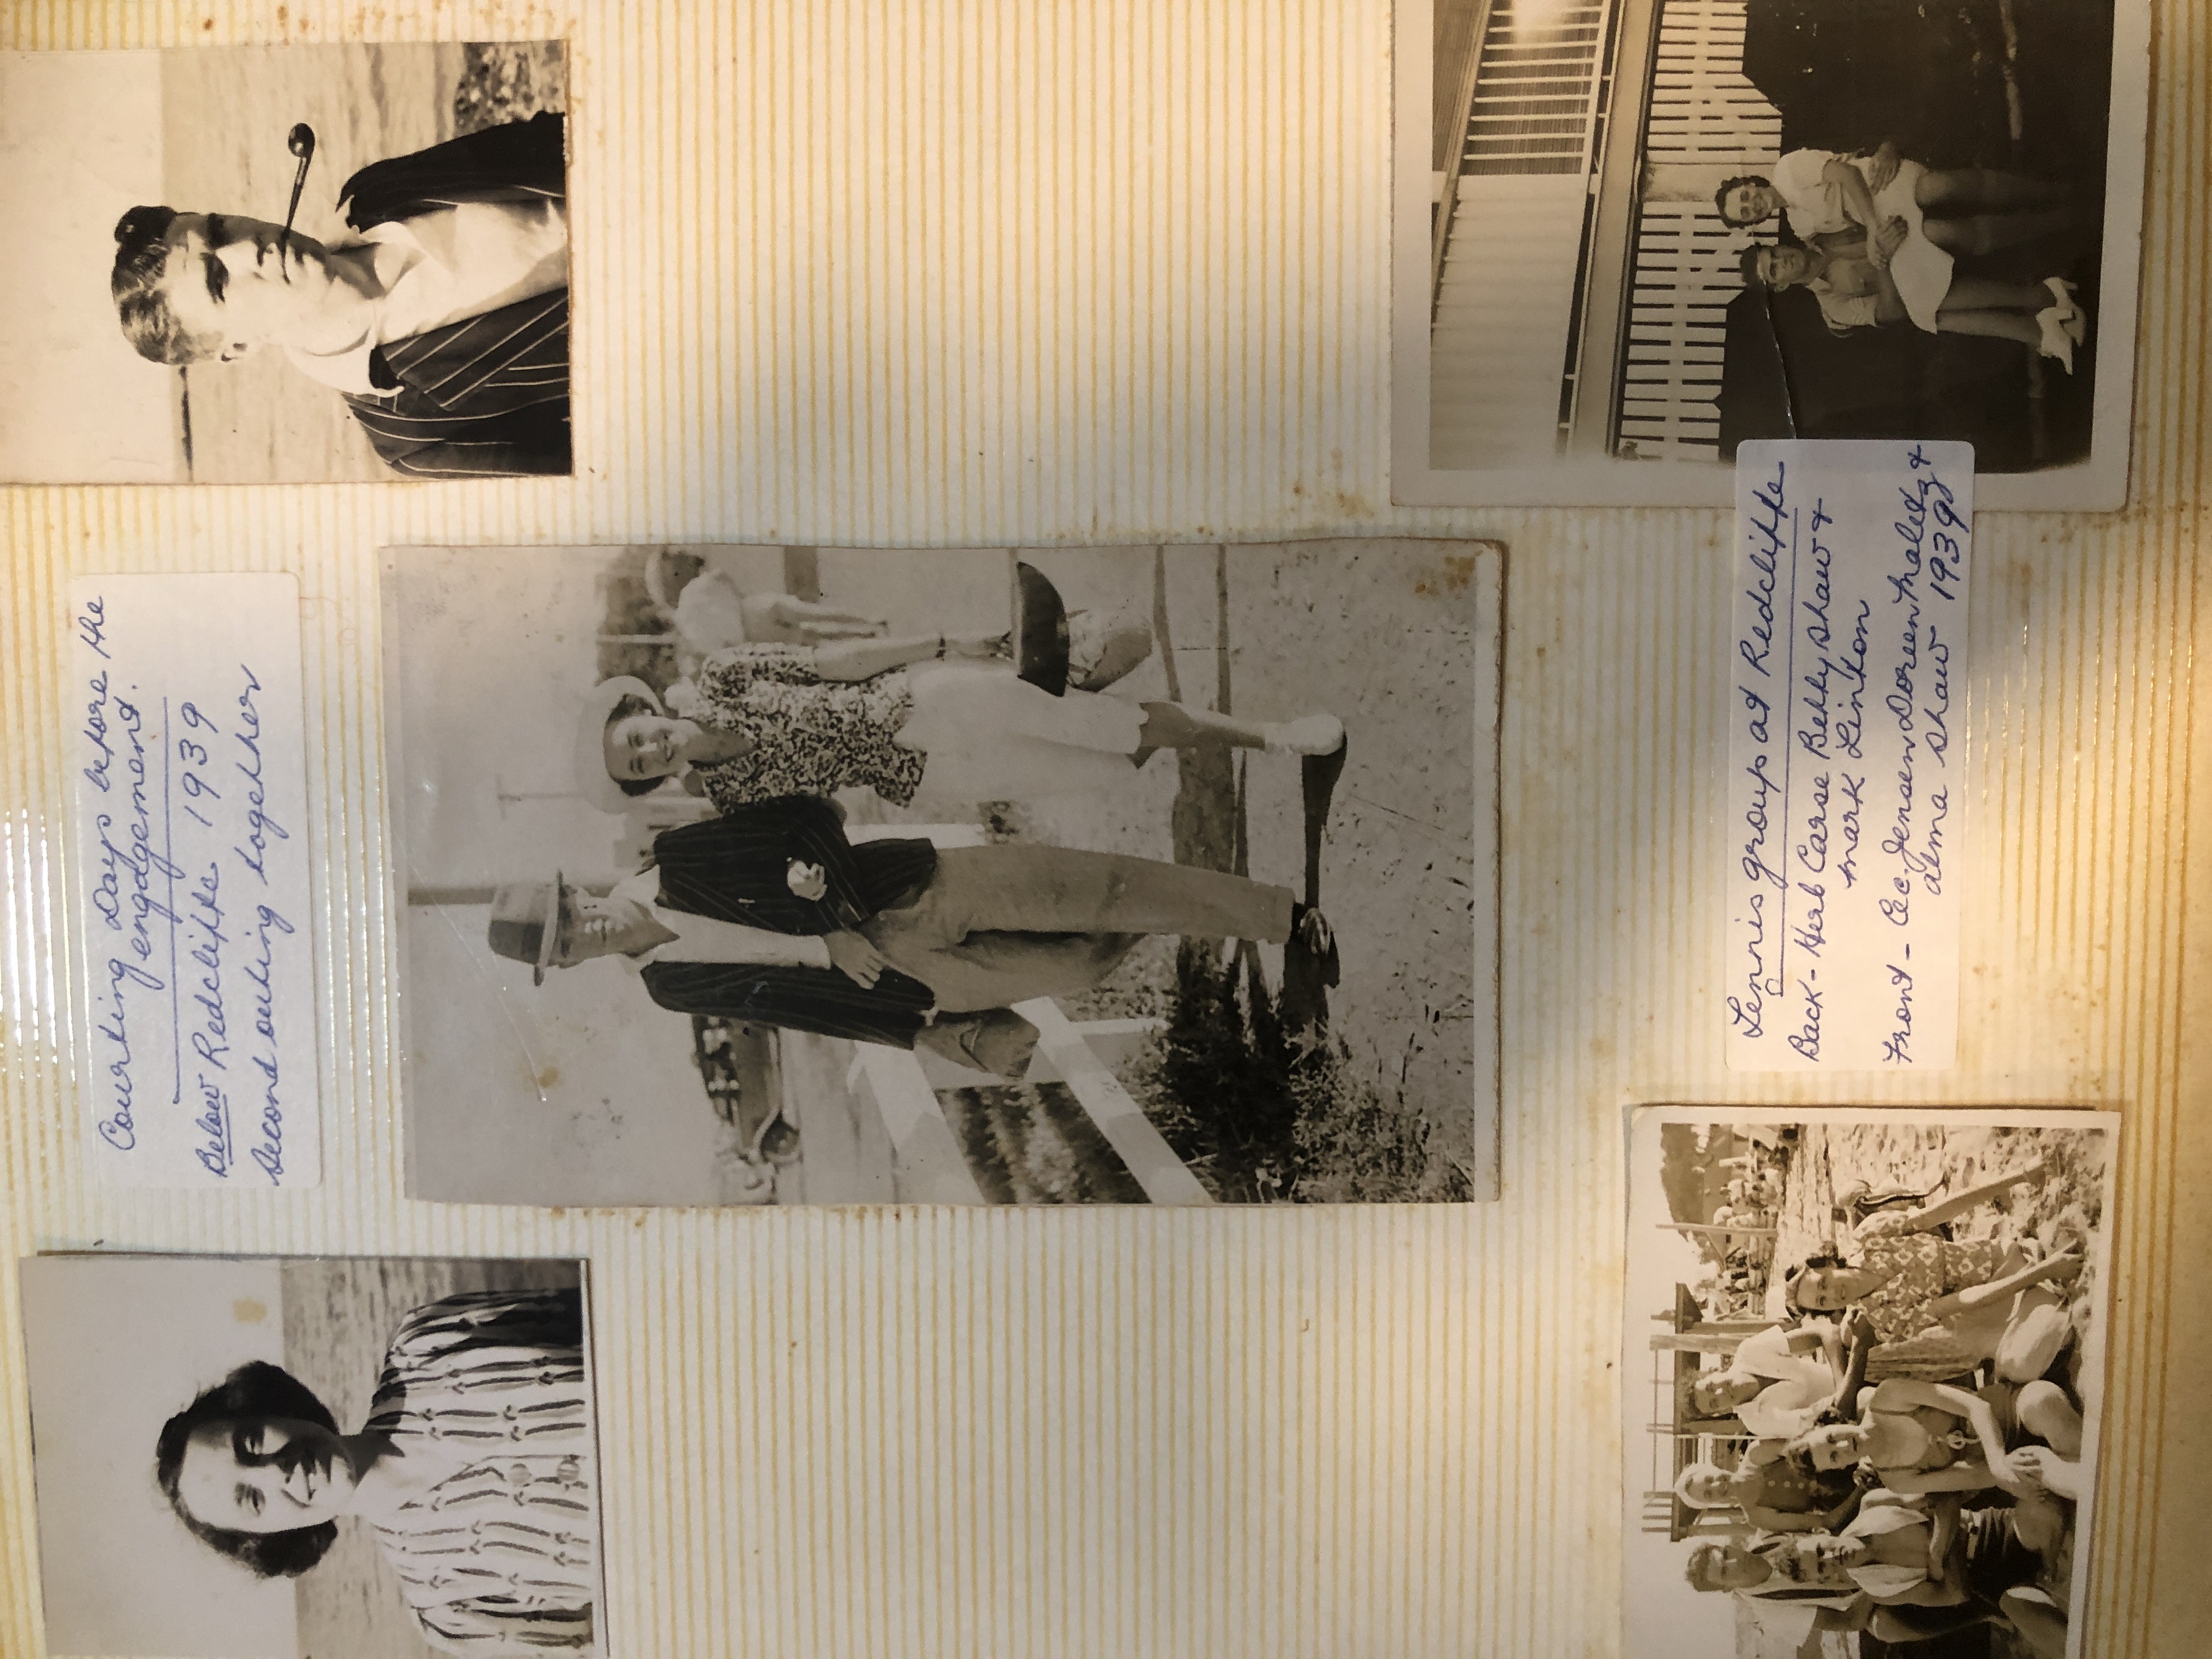 Courting Days before the
engagement.
Below Redcliffe 1939
Second outing together
Tennis group at Redcliffe
Back - Herb Carse Betty Shaw &
Mark Linton
Front - Cec. Jensen Doreen Maletz &
Alma Shaw 1939